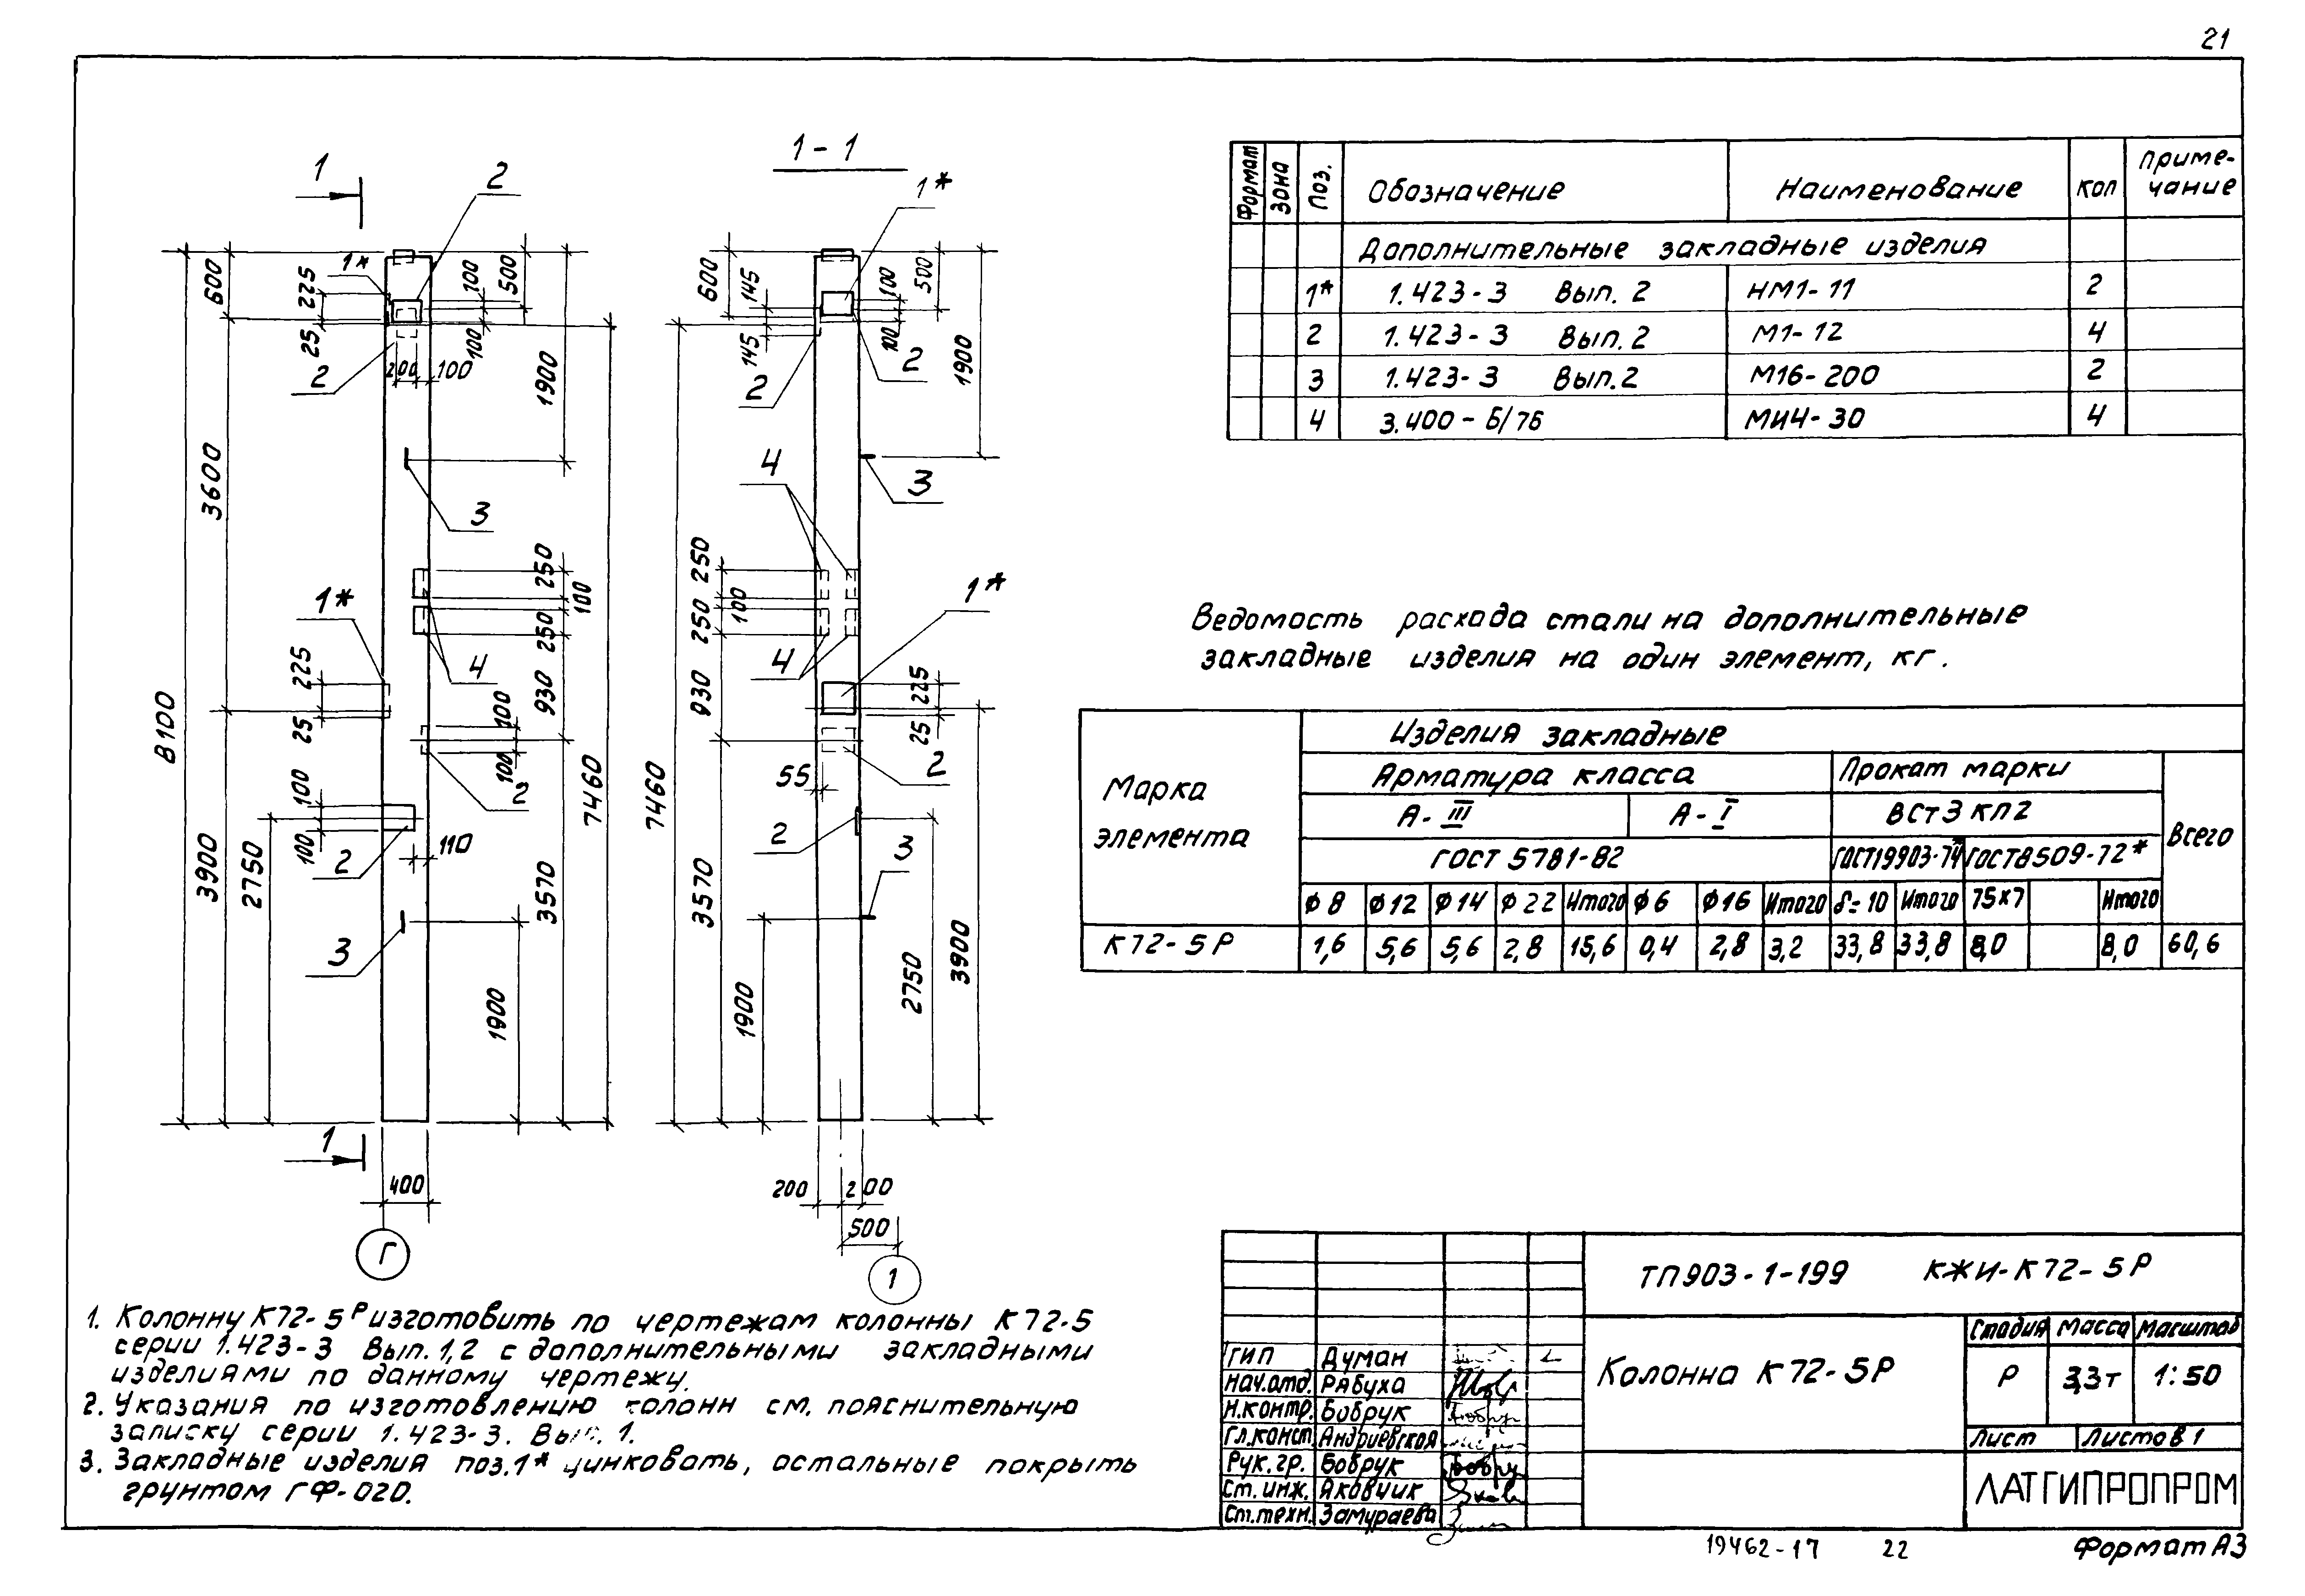 21
1
1-1
2
1*
8100
600
225
25
1*
2
200
100
100
100
500
1900
3600
3
1*
225
25
250
100
250
930
4
100
100
2
7460
3570
3900
2750
100
100
2
110
3
1900
1
400
Г
600
145
145
2
100
100
500
2
1900
4
3
7460
250
100
250
930
4
1*
225
25
2
55
2
3
3570
1900
2750
3900
200
200
500
1
Формат Зона Поз. Обозначение Наименование Кол Приме-
чание
Дополнительные закладные изделия
1* 1.423-3 Вып. 2 НМ1-11 2
2 1.423-3 Вып. 2 М1-12 4
3 1.423-3 Вып. 2 М16-200 2
4 3.400-6/76 МИ4-30 4
Ведомость расхода стали на дополнительные
закладные изделия на один элемент, кг.
Марка
элемента
Изделия закладные
Арматура класса Прокат марки
А-III А-I ВСт3 кп2 Всего
ГОСТ 5781-82 ГОСТ19903-74* ГОСТ8509-72*
ф8 ф12 ф14 ф22 Итого ф6 ф16 Итого δ=10 Итого 75х7 Итого
К72-5Р 1,6 5,6 5,6 2,8 15,6 0,4 2,8 3,2 33,8 33,8 8,0 8,0 60,6
1. Колонну К72-5Р изготовить по чертежам колонны К72-5
серии 1.423-3 Вып. 1,2 с дополнительными закладными
изделиями по данному чертежу.
2. Указания по изготовлению колонн см. пояснительную
записку серии 1.423-3. Вып. 1.
3. Закладные изделия поз.1* цинковать, остальные покрыть
грунтом ГФ-020.
ТП903-1-199 КЖИ-К72-5Р
Колонна К72-5Р
Стадия Масса Масштаб
Р 3,3т 1:50
Лист Листов 1
ЛАТГИПРОПРОМ
ГИП Думан
Нач.отд. Рябуха
Н.контр. Бобрук
Гл.конст. Андриевская
Рук.гр. Бобрук
Ст.инж. Яковчик
Ст.техн. Замураева
19462-17 22
Формат А3